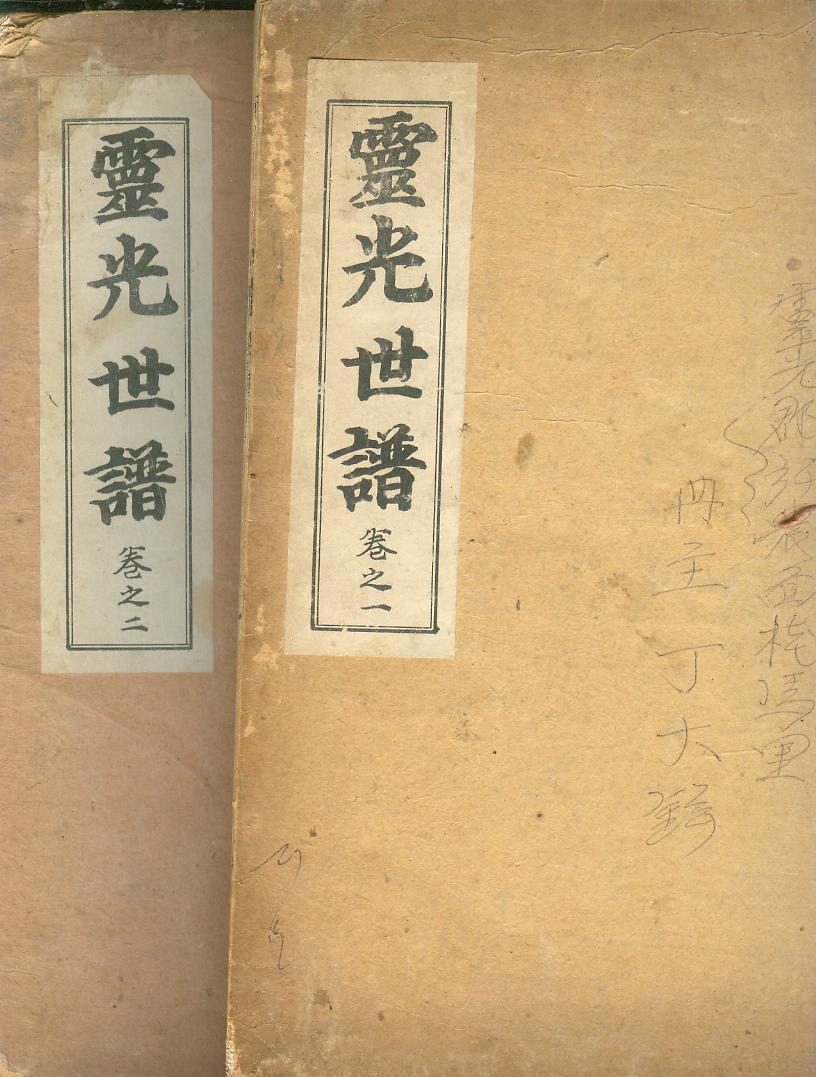 靈光郡 面 馬里
冊主 丁大
靈光世譜 卷之一
靈光世譜 卷之二